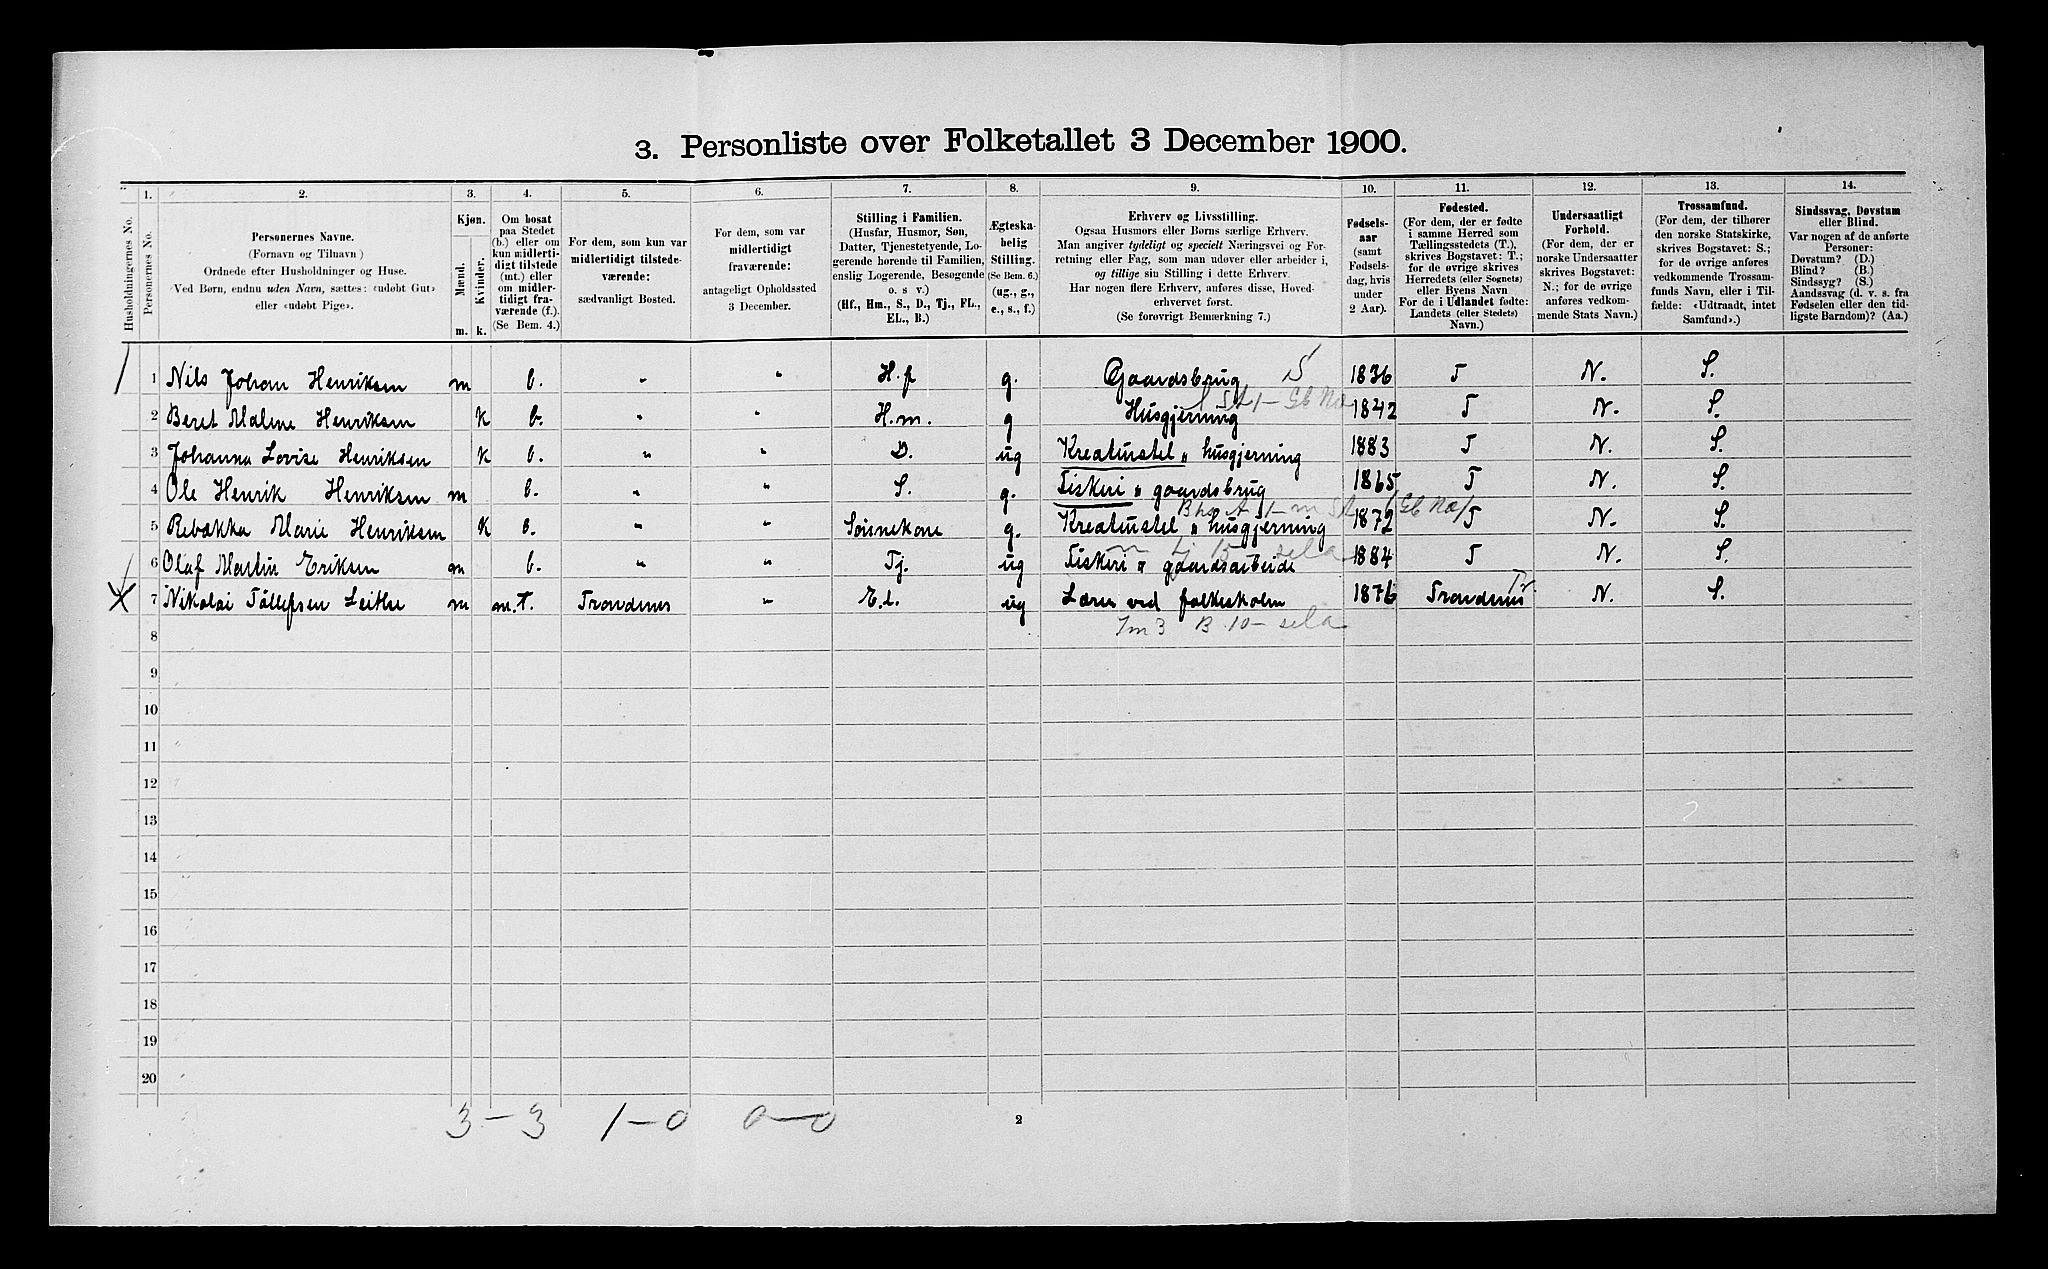 3. Personliste over Folketallet 3 December 1900.
1. 2. 3. 4. 5. 6. 7. 8. 9. 10. 11. 12. 13. 14.
Husholdningernes No.
Personernes No.
Personernes Navne.
(Fornavn og Tilnavn)
Ordnede efter Husholdninger og Huse.
Ved Børn, endnu uden Navn, sættes: «udøbt Gut»
eller «udøbt Pige».
Kjøn.
Mænd.
Kvinder.
m. k.
Om bosat
paa Stedet
(b.) eller om
kun midlerti-
digt tilstede
(mt.) eller
om midler-
tidigt fra-
værende (f.).
(Se Bem. 4.)
For dem, som kun var
midlertidigt tilstede-
værende:
sædvanligt Bosted.
For dem, som var
midlertidigt
fraværende:
antageligt Opholdssted
3 December.
Stilling i Familien.
(Husfar, Husmor, Søn,
Datter, Tjenestetyende, Lo-
gerende hørende til Familien,
enslig Logerende, Besøgende
o. s v.)
(Hf., Hm., S., D., Tj., FL.,
EL., B.)
Ægteska-
belig
Stilling.
(Se Bem. 6.)
(ug., g.,
e., s., f.)
Erhverv og Livsstilling.
Ogsaa Husmors eller Børns særlige Erhverv.
Man angiver tydeligt og specielt Næringsvei og For-
retning eller Fag, som man udøver eller arbeider i,
og tillige sin Stilling i dette Erhverv.
Har nogen flere Erhverv, anføres disse, Hoved-
erhvervet først.
(Se forøvrigt Bemærkning 7.)
Fødsels-
aar
(samt
Fødsels-
dag, hvis
under
2 Aar).
Fødested.
(For dem, der er fødte
i samme Herred som
Tællingsstedets (T.),
skrives Bogstavet: T.;
for de øvrige skrives
Herredets (eller Sognets)
eller Byens Navn
For de i Udlandet fødte:
Landets (eller Stedets)
Navn.)
Undersaatligt
Forhold.
(For dem, der er
norske Undersaatter
skrives Bogstavet:
N.; for de øvrige
anføres vedkom-
mende Stats Navn.)
Trossamfund.
(For dem, der tilhører
den norske Statskirke,
skrives Bogstavet: S.;
for de øvrige anføres
vedkommende Trossam-
funds Navn, eller i Til-
fælde: «Udtraadt, intet
Samfund».)
Sindssvag, Døvstum
eller Blind.
Var nogen af de anførte
Personer:
Døvstum? (D.)
Blind? (B.)
Sindssyg? (S.)
Aandssvag (d. v. s. fra
Fødselen eller den tid-
ligste Barndom)? (Aa.)
1 Nils Johan Henriksen m b. " " H.f g. Gaardsbrug S 1836 T N. S.
2 Beret Malene Henriksen K b. " " H.m. g Husgjerning 1842 T N. S.
3 Johanna Lovise Henriksen K b. " " D. ug Kreaturstel " husgjerning 1883 T N. S.
4 Ole Henrik Henriksen m b. " " S. g. Fiskeri " gaardsbrug 1865 T N. S.
5 Rebækka Marie Henriksen K b. " " Sønnekone g. Kreaturstel " husgjerning 1872 T N. S.
6 Olaf Martin Eriksen m b. " " Tj. ug Fiskeri " gaardsarbeide 1884 T N. S.
7 Nikolai Tollefsen Leithe m m.T. Trondenes " E.L. ug Lærer ved folkeskolen 1876 Trondenes N. S.
8
9
10
11
12
13
14
15
16
17
18
19
20
3 - 3 1 - 0 0 - 0
2